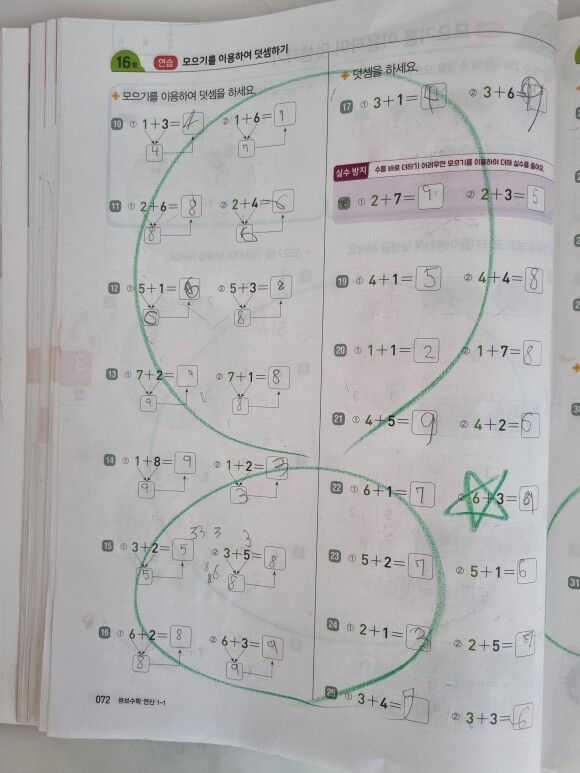 16회 연습 모으기를 이용하여 덧셈하기
모으기를 이용하여 덧셈을 하세요.
10 ① 1+3=4 ② 1+6=7
4 7
11 ① 2+6=8 ② 2+4=6
8 6
12 ① 5+1=6 ② 5+3=8
6 8
13 ① 7+2=9 ② 7+1=8
9 8
14 ① 1+8=9 ② 1+2=3
9 3
15 ① 3+2=5 ② 3+5=8
5 8
16 ① 6+2=8 ② 6+3=9
8 9
072 큐브수학 연산 1-1
덧셈을 하세요.
17 ① 3+1=4 ② 3+6=9
실수 방지 수를 바로 더하기 어려우면 모으기를 이용하여 더해 실수를 줄여요.
① 2+7=9 ② 2+3=5
19 ① 4+1=5 ② 4+4=8
20 ① 1+1=2 ② 1+7=8
21 ① 4+5=9 ② 4+2=6
22 ① 6+1=7 ② 6+3=
23 ① 5+2=7 ② 5+1=6
24 ① 2+1=3 ② 2+5=7
25 ① 3+4=7 ② 3+3=6